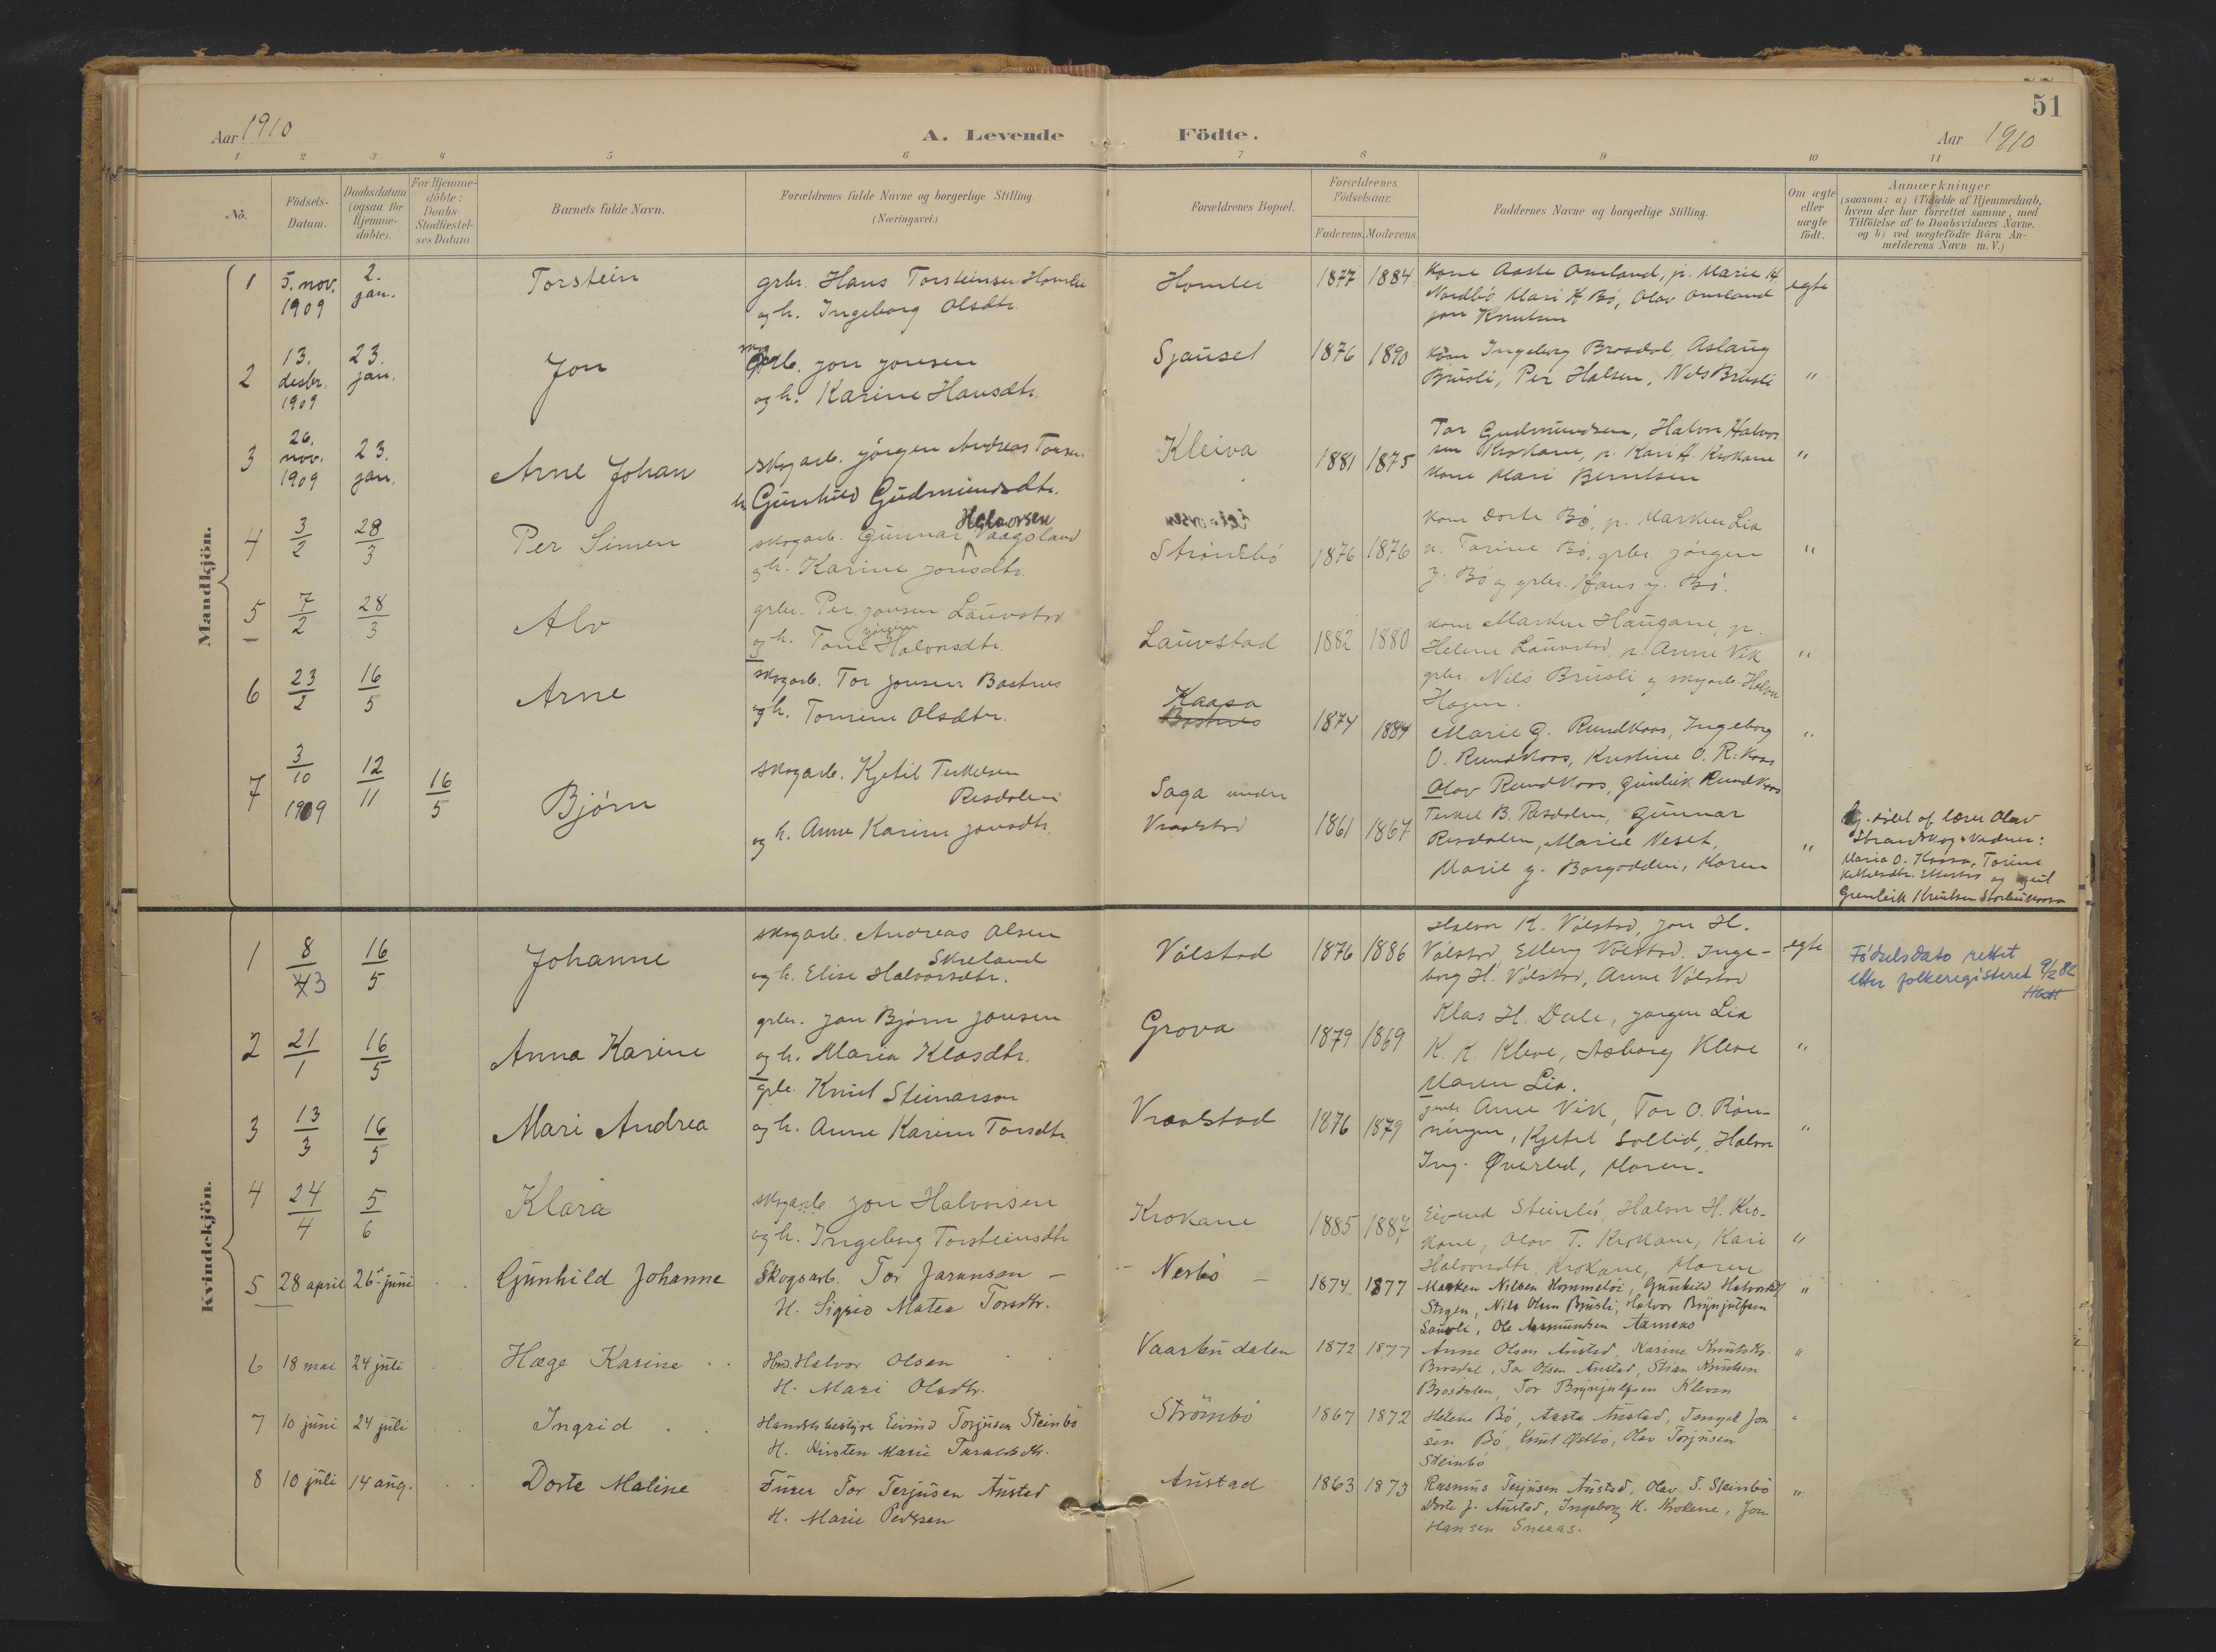 51
Aar 1910
A. Levende Födte.
Aar 1910
1 2 3 4 5 6 7 8 9 10 11
No.
Födsels-Datum.
Daabsdatum (ogsaa for Hjemme-döbte).
For Hjemme-döbte: Daabs-Stadfæstel-ses Datum.
Barnets fulde Navn.
Forældrenes fulde Navne og borgerlige Stilling. (Næringsvei.)
Forældrenes Bopæl.
Forældrenes Födselsaar.
Faderens. Moderens.
Faddernes Navne og borgerlige Stilling.
Om ægte eller uægte födt.
Anmærkninger
(saasom: a) i Tilfælde af Hjemmedaab,
hvem der har forrettet samme, med
Tilföielse af to Daabsvidners Navne.
og b) ved uægtefödte Börn An-
melderens Navn m.V.)
Mandkjön.
1 5. nov. 1909 2. jan. Torstein
grbr. Hans Torsteinsen Homlei
og h. Ingeborg Olsdtr.
Homlei 1877 1884
Kone Aaste Omland, p. Marie H.
Nordbö, Mari K. Bö, Olav Omland
Jon Knutsen
egte
2 13. desbr. 1909 23. jan. Jon
Jon Jonsen
og h. Karine Hansdtr.
Sjausel 1876 1890
Kone Ingeborg Brosdal, Aslaug
Brusli, Per Halsen, Nils Brusli
"
3 26. nov. 1909 23. jan. Arne Johan
Skogarb. Jörgen Andreas
h. Gunhild Gudmundsdtr.
Kleiva 1881 1875
Tor Gudmundsen, Halvor Halvor
sen Krokane, p. Kari H. Krokane
Kone Mari Berntsen
"
4 3/2 28/3 Per Simen
Halvorsen
skogarb. Gunnar Vaagsland
og h. Karine Jonsdtr.
Strömbö 1876 1876
Kone Dorte Bö, p. Marken Lia
p. Torine Bö, grbr. Jörgen
J. Bö og grbr. Hans J. Bö.
"
5 7/2 28/3 Alv
grbr. Per Jonsen Lauvstad
og h. Tone Halvorsdtr.
Lauvstad 1882 1880
Kone Marken Haugane, p.
Helene Lauvstad, p. Anne Vik
grbr. Nils Brusli og skogarb. Halvor
Hagen.
"
6 23/2 16/5 Arne
Skogarb. Tor Jonsen Bastnes
og h. Tomine Olsdtr.
Kaasa
Bastnes
1874 1884
Marie G. Rundkaas, Ingeborg
O. Rundkaas, Kristine O. R.kaas
Olav Rundkaas, Gunleik Rundkaas
"
7 3/10 1909 12/11 16/5 Bjørn
Skogarb. Kjetil Terkelsen
Risdalen
og h. Anne Karine Jonsdtr.
Saga under
Vraalstad
1861 1867
Terkel B. Risdalen, Gunnar
Risdalen, Marie Neset,
Marie J. Borgodden, Moren
"
Hj. döbt af lærer Olav
Strandskog. Vidner:
Maria O. Kaasa, Torine
og
Grenleik Knutsen
Kvindekjön.
1 8/3 16/5 Johanne
Skogarb. Andreas Olsen
Skreland
og h. Elise Halvorsdtr.
Völstad 1876 1886
Halvor K. Völstad, Jon H.
Völstad, Elling Völstad. Inge-
borg H. Völstad, Anne Völstad
egte
Födselsdato rettet
etter folkeregisteret 9/2 82
2 21/1 16/5 Anna Karine
grbr. Jon Bjørn Jonsen
og h. Maria Klasdtr.
Grova 1879 1869
Klas H. Dale, Jørgen Lia
K. K. Kleve, Asborg Kleve
Maren Lia.
"
3 13/3 16/5 Mari Andrea
grbr. Knut Steinarson
og h. Anne Karine Torsdtr.
Vraalstad 1876 1879
Anne Vik, Tor O. Røn-
ningen, Kjetil Sollid, Halvor
Ing. Øverlid, Moren.
"
4 24/4 5/6 Klara
Skogarb. Jon Halvorsen
og h. Ingeborg Torsteinsdtr
Krokane 1885 1887
Eivind Steinbö, Halvor H. Kro-
kane, Olav T. Krokane, Kari
Halvorsdtr. Krokane, Moren
"
5 28 april 26 juni Gunhild Johanne
Skogsarb. Tor Jaranson
H. Sigrid Matea Torsdtr.
Nesbö 1874 1877
Marken Nilsen Hommeløi, Gunhild Halvorsd.
Stigen, Nils Olsen Brusli, Halvor Brynjulfsen
Sausli, Ole Aasmundsen
"
6 18 mai 24 juli Hæge Karine
Hmd. Halvor Olsen
H. Mari Olsdtr.
Vaarlidalen 1872 1877
Anne Olsen Austad, Karine Knutsdtr.
Brosdal, Tor Olsen Austad, Stian Knutsen
Brosdalen, Tor Brynjulfsen Kleven
"
7 10 juni 24 juli Ingrid
Handelsbestyrer Eivind Torjusen Steinbö
H. Kirsten Marie Taraldsdtr.
Strömbö 1867 1872
Helene Bö, Aaste Austad, Tengel Jon
sen Bö, Knut Østbö, Olav Torjusen
Steinbö
"
8 10 juli 14 aug. Dorte Maline
Tor Terjusen Austad
H. Marie Pedersen
Austad 1863 1873
Rasmus Terjusen Austad, Olav T. Steinbö
Dorte J. Austad, Ingeborg H. Krokene, Jon
Hansen Sneaas.
"